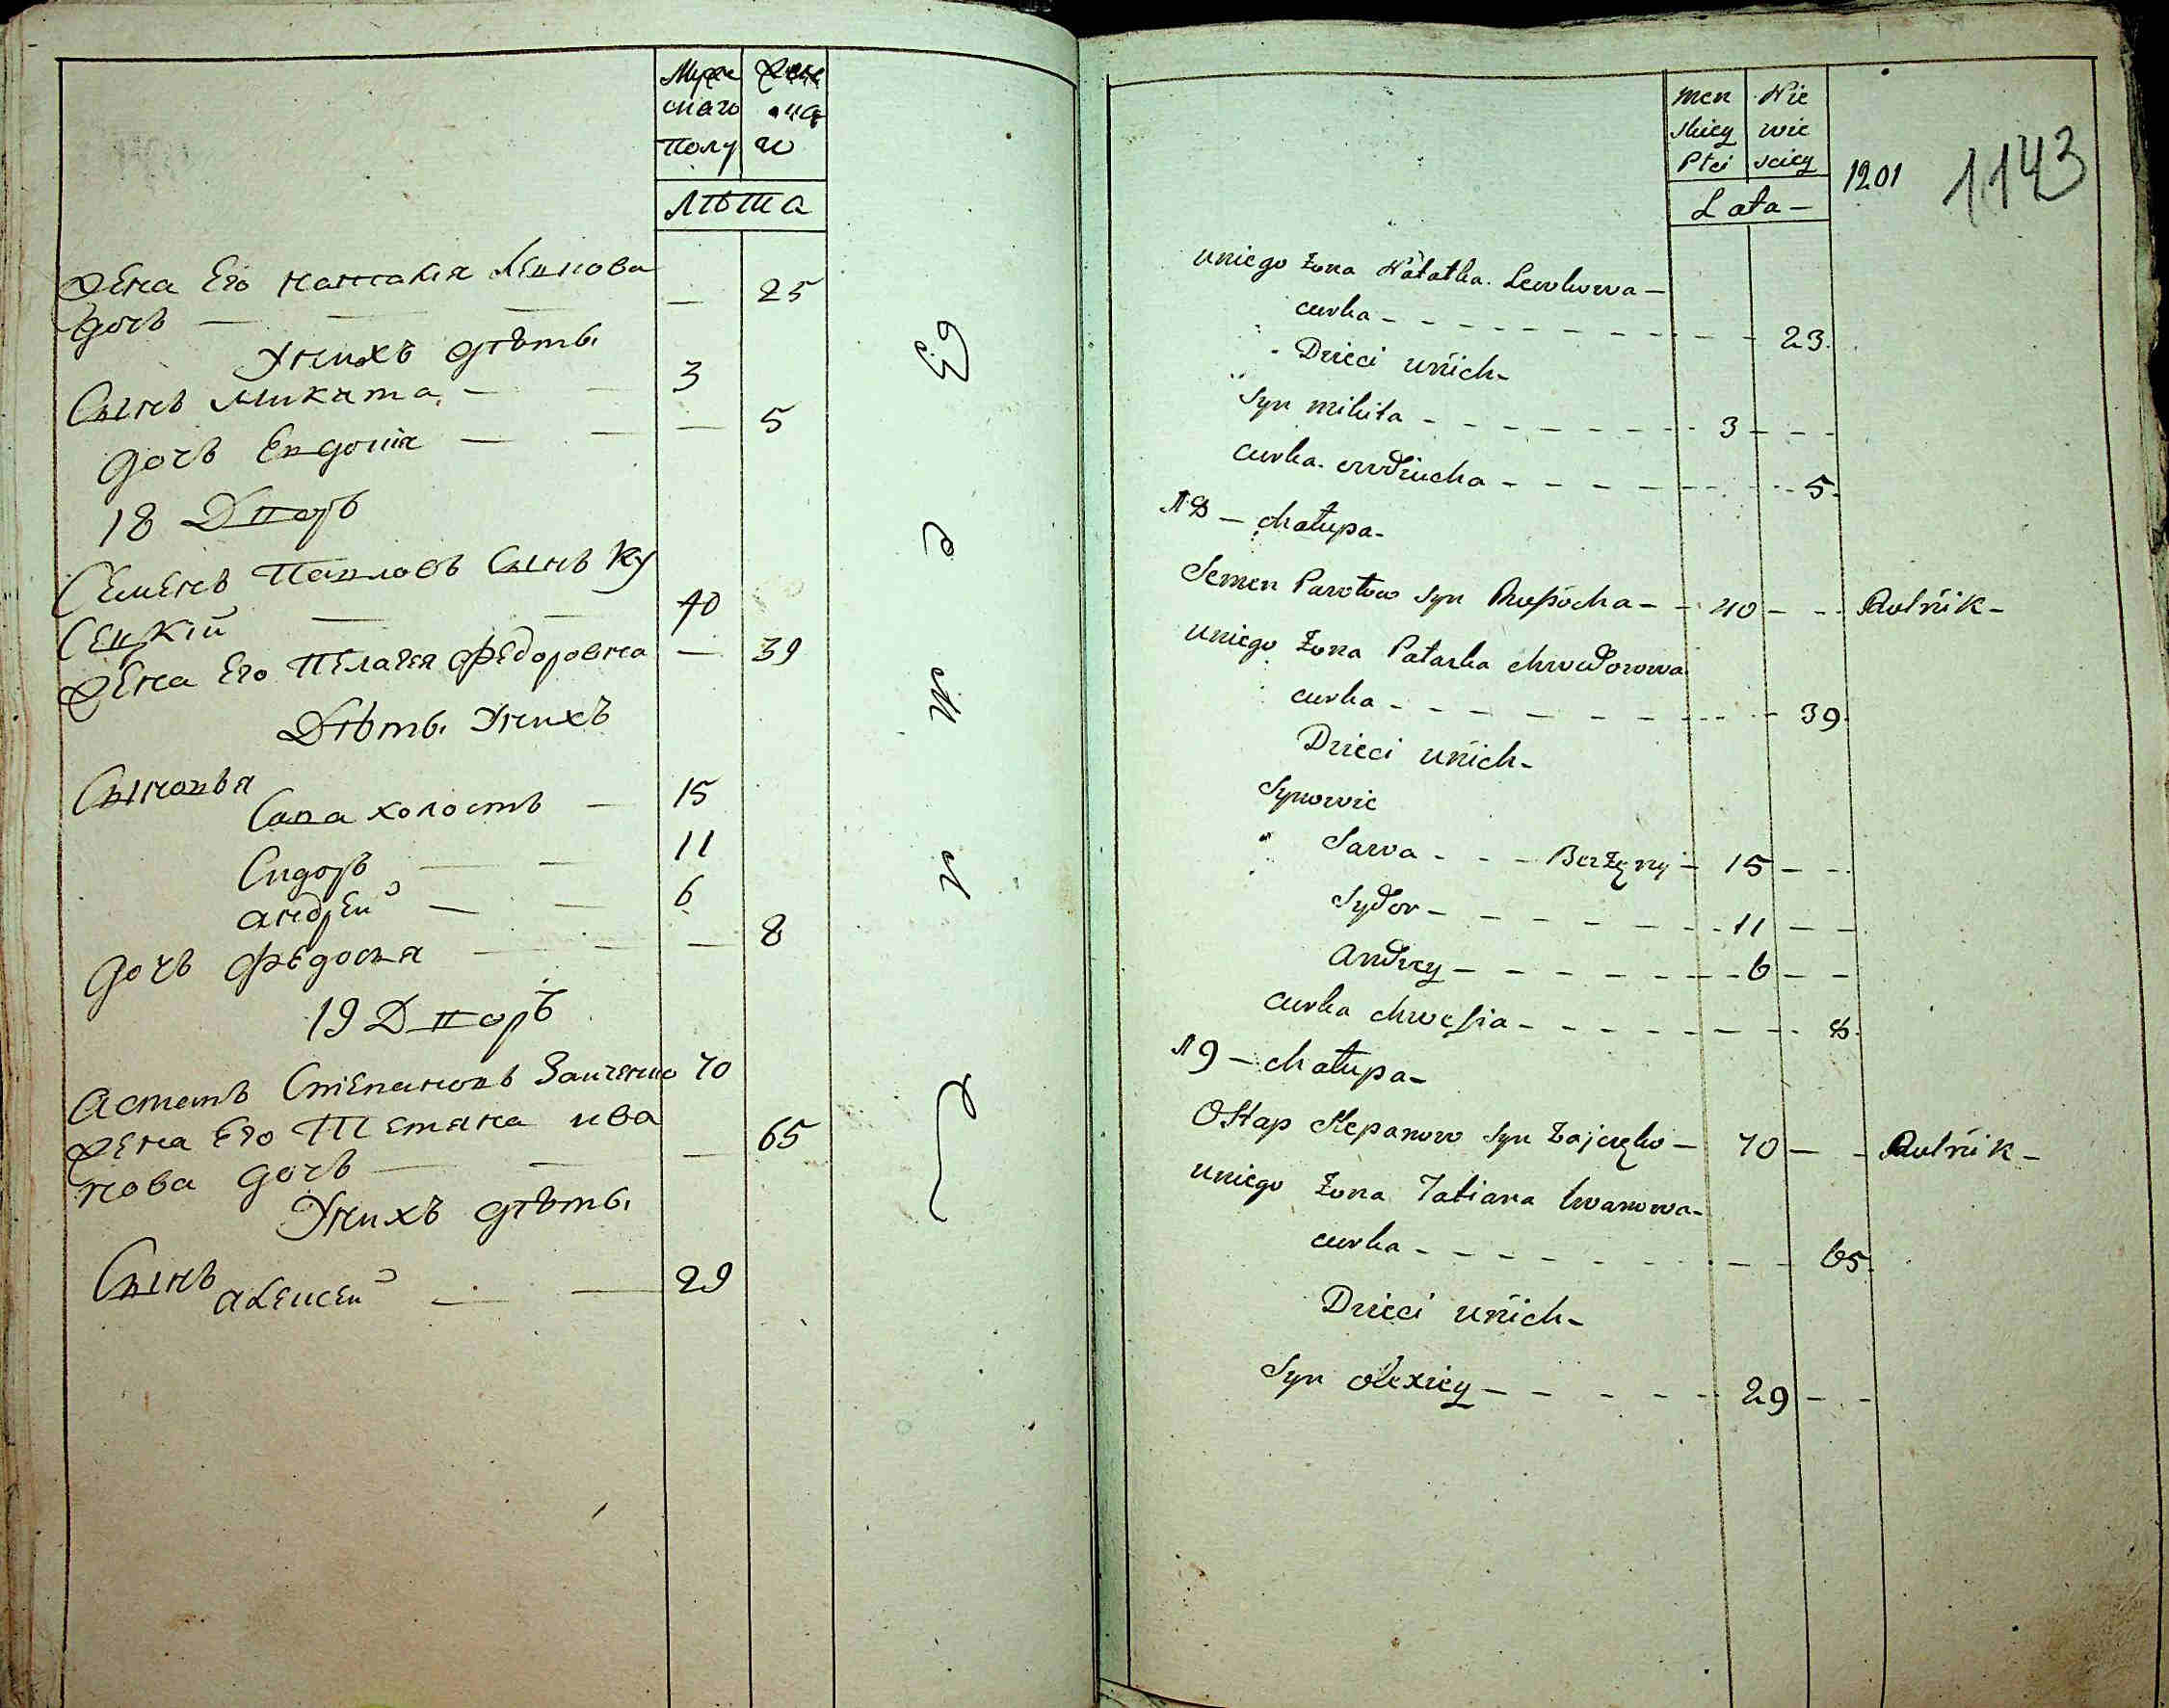 Муже Жен
скаго ска
полу го
Лѣта
Жена Его наталия Левкова
дочь — — — — 25
Унихъ дѣти
Сынъ микита — — 3
дочь Евдокия — — — 5
18 Дворъ
Семенъ Павловъ Сынъ Ку
Сецкій — — 40
Жена Его Пелагея Федоровна — 39
Дѣти Унихъ
Сыновья
Сава холостъ — 15
Сидоръ — — 11
андрей — — 6
Дочь Федосья — — — 8
19 Дворъ
Астапъ Степановъ Заиченко 70
Жена Его Тетяна ива
нова дочь — — — 65
Унихъ дѣти
Сынъ
алексей — — 29
men Nie
skiey wie
Płci sciey
Lata —
1201
1143
uniego żona Natałka Lewkowa —
curka — 23
Dzieci unich —
Syn mikita — 3 —
curka owdiucha — 5
18 — chałupa —
Semen Pawłow syn — 40 — Rolnik —
uniego żona Połaska chwedorowa
curka — 39
Dzieci unich —
Synowie
Sawa — Bezżenny — 15 —
Sydor — 11 —
Andrey — 6 —
curka chwesia — 8
19 — chałupa —
Ostap Stepanow syn Zajczęko — 70 — Rolnik —
uniego żona Tatiana Iwanowa —
curka — 65
Dzieci unich —
Syn olexiey — 29 —